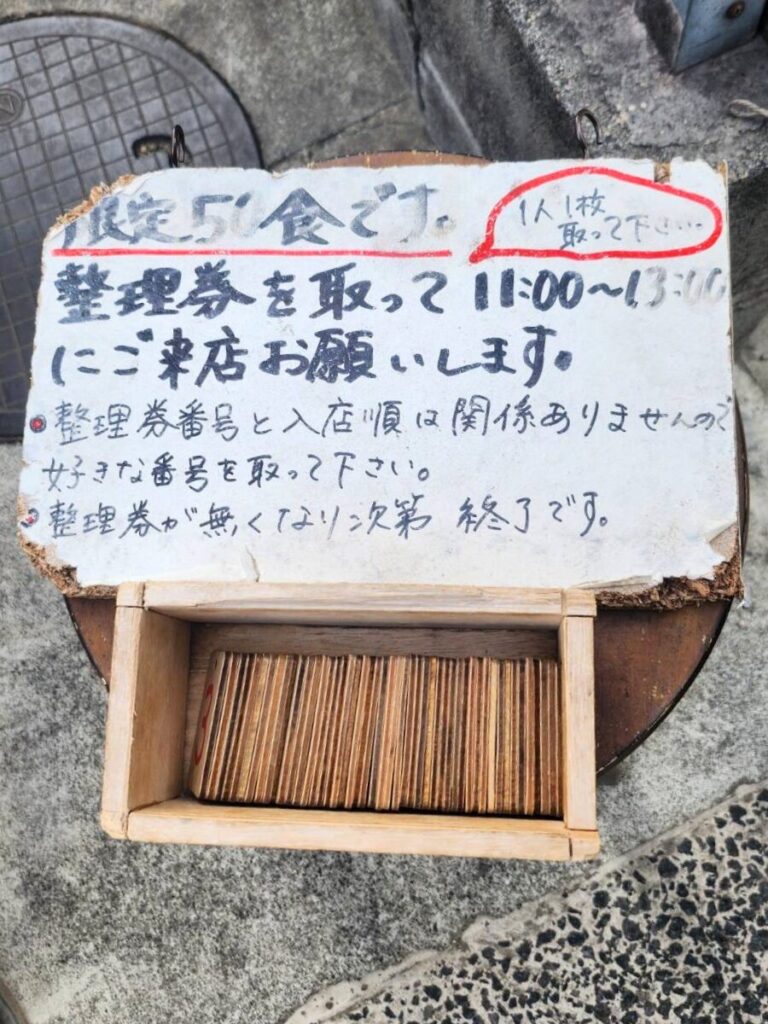 限定50食です。
1人1枚
取って下さい
整理券を取って 11:00〜13:00
にご来店お願いします。
整理券番号と入店順は関係ありませんので
好きな番号を取って下さい。
整理券が無くなり次第 終了です。